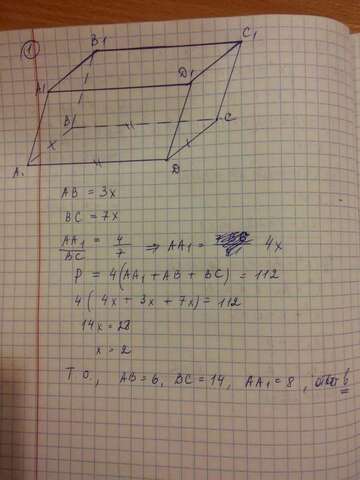 1
B1 C1
A1 D1
B C
x
A D
AB = 3x
BC = 7x
AA1/BC = 4/7 ⇒ AA1 = 4x
P = 4(AA1 + AB + BC) = 112
4( 4x + 3x + 7x) = 112
14x = 28
x = 2
Т.О., AB = 6, BC = 14, AA1 = 8,